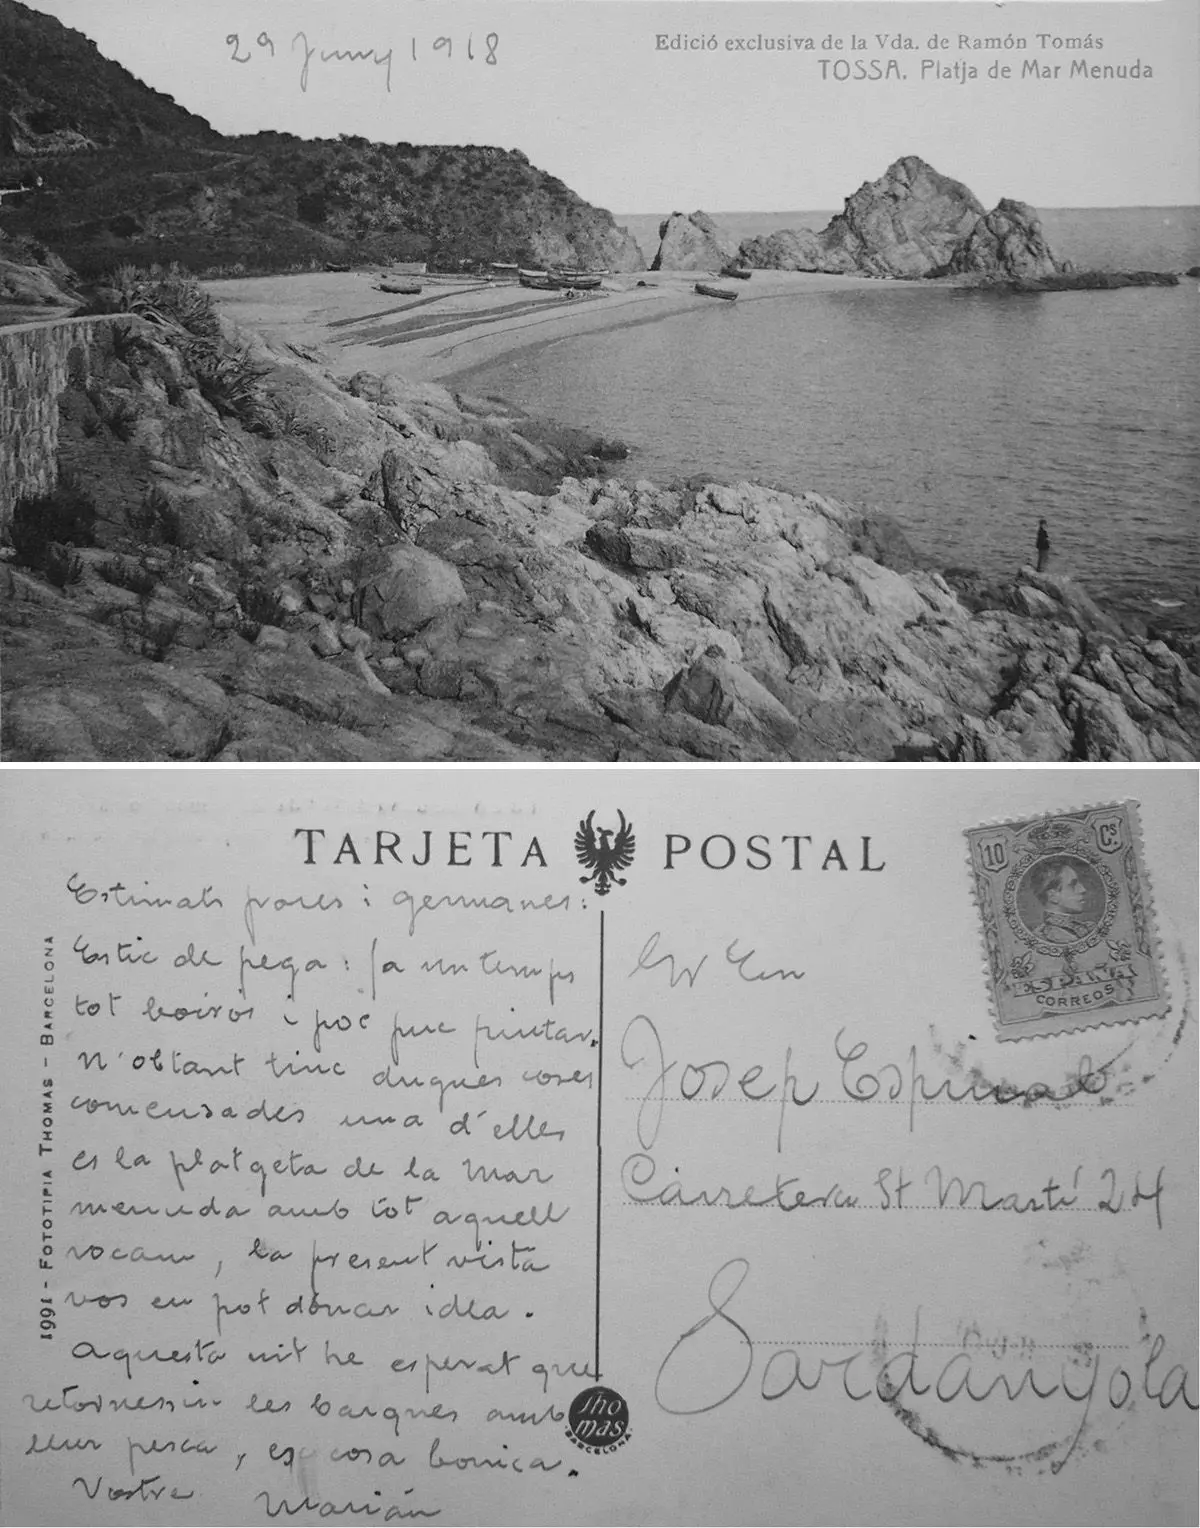 29 Juny 1918
Edició exclusiva de la Vda. de Ramón Tomás
TOSSA. Platja de Mar Menuda
TARJETA POSTAL
10 Cs.
CORREOS
Estimats pares i germanes:
Estic de pega: fa un temps
tot boirós i poc puc pintar.
N'obtant tinc dugues coses
comensades una d'elles
es la platgeta de la mar
menuda amb tot aquell
rocam, la present vista
vos en pot dónar idea.
Aquesta nit he esperat que
retornessin les barques amb
llur pesca, es cosa bonica.
Vostre Marián
1991 - FOTOTIPIA THOMAS - BARCELONA
Thomas
BARCELONA
En
Josep Espinal
Carretera St Martí 24
Sardanyola